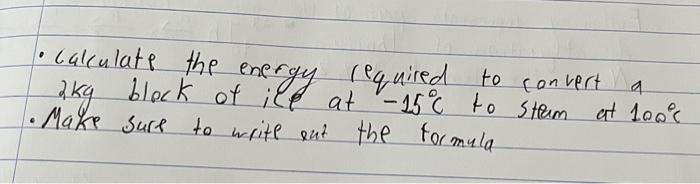 • calculate the energy required to convert a
2kg block of ice at -15°C to steam at 100°C
• Make sure to write out the formula